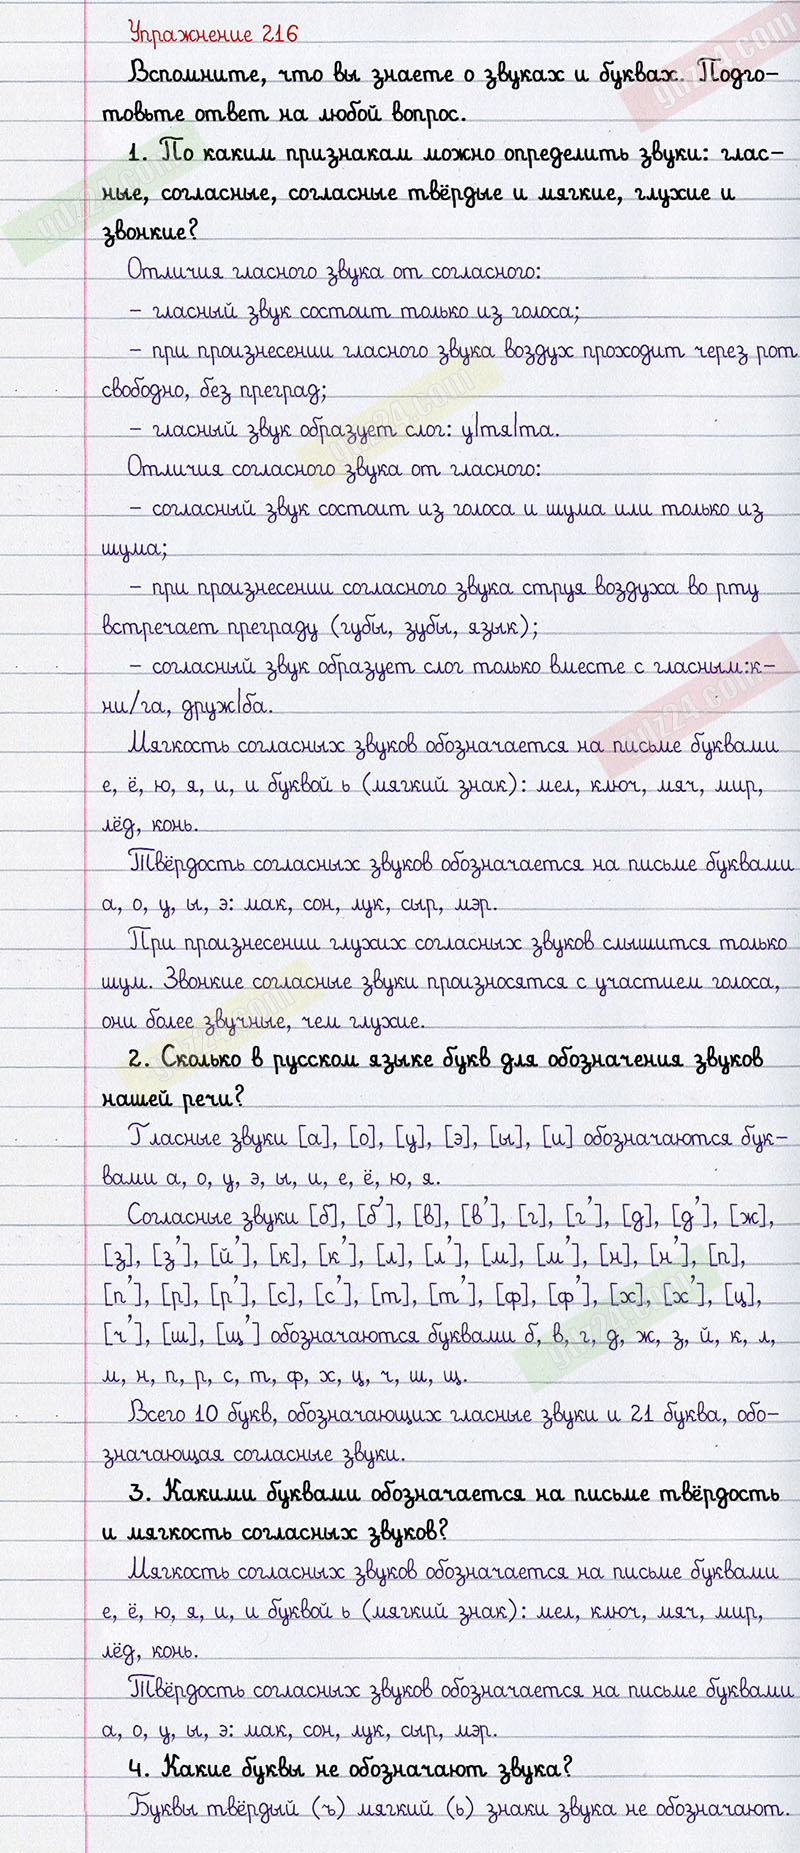 Упражнение 216
Вспомните, что вы знаете о звуках и буквах. Подго-
товьте ответ на любой вопрос.
1. По каким признакам можно определить звуки: глас-
ные, согласные, согласные твёрдые и мягкие, глухие и
звонкие?
Отличия гласного звука от согласного:
- гласный звук состоит только из голоса;
- при произнесении гласного звука воздух проходит через рот
свободно, без преград;
- гласный звук образует слог: у|тя|та.
Отличия согласного звука от гласного:
- согласный звук состоит из голоса и шума или только из
шума;
- при произнесении согласного звука струя воздуха во рту
встречает преграду (губы, зубы, язык);
- согласный звук образует слог только вместе с гласным:к-
ни/га, друж|ба.
Мягкость согласных звуков обозначается на письме буквами
е, ё, ю, я, и, и буквой ь (мягкий знак): мел, ключ, мяч, мир,
лёд, конь.
Твёрдость согласных звуков обозначается на письме буквами
а, о, у, ы, э: мак, сон, лук, сыр, мэр.
При произнесении глухих согласных звуков слышится только
шум. Звонкие согласные звуки произносятся с участием голоса,
они более звучные, чем глухие.
2. Сколько в русском языке букв для обозначения звуков
нашей речи?
Гласные звуки [а], [о], [у], [э], [ы], [и] обозначаются бук-
вами а, о, у, э, ы, и, е, ё, ю, я.
Согласные звуки [б], [б'], [в], [в'], [г], [г'], [д], [д'], [ж],
[з], [з'], [й'], [к], [к'], [л], [л'], [м], [м'], [н], [н'], [п],
[п'], [р], [р'], [с], [с'], [т], [т'], [ф], [ф'], [х], [х'], [ц],
[ч'], [ш], [щ'] обозначаются буквами б, в, г, д, ж, з, й, к, л,
м, н, п, р, с, т, ф, х, ц, ч, ш, щ.
Всего 10 букв, обозначающих гласные звуки и 21 буква, обо-
значающая согласные звуки.
3. Какими буквами обозначается на письме твёрдость
и мягкость согласных звуков?
Мягкость согласных звуков обозначается на письме буквами
е, ё, ю, я, и, и буквой ь (мягкий знак): мел, ключ, мяч, мир,
лёд, конь.
Твёрдость согласных звуков обозначается на письме буквами
а, о, у, ы, э: мак, сон, лук, сыр, мэр.
4. Какие буквы не обозначают звука?
Буквы твёрдый (ъ) мягкий (ь) знаки звука не обозначают.